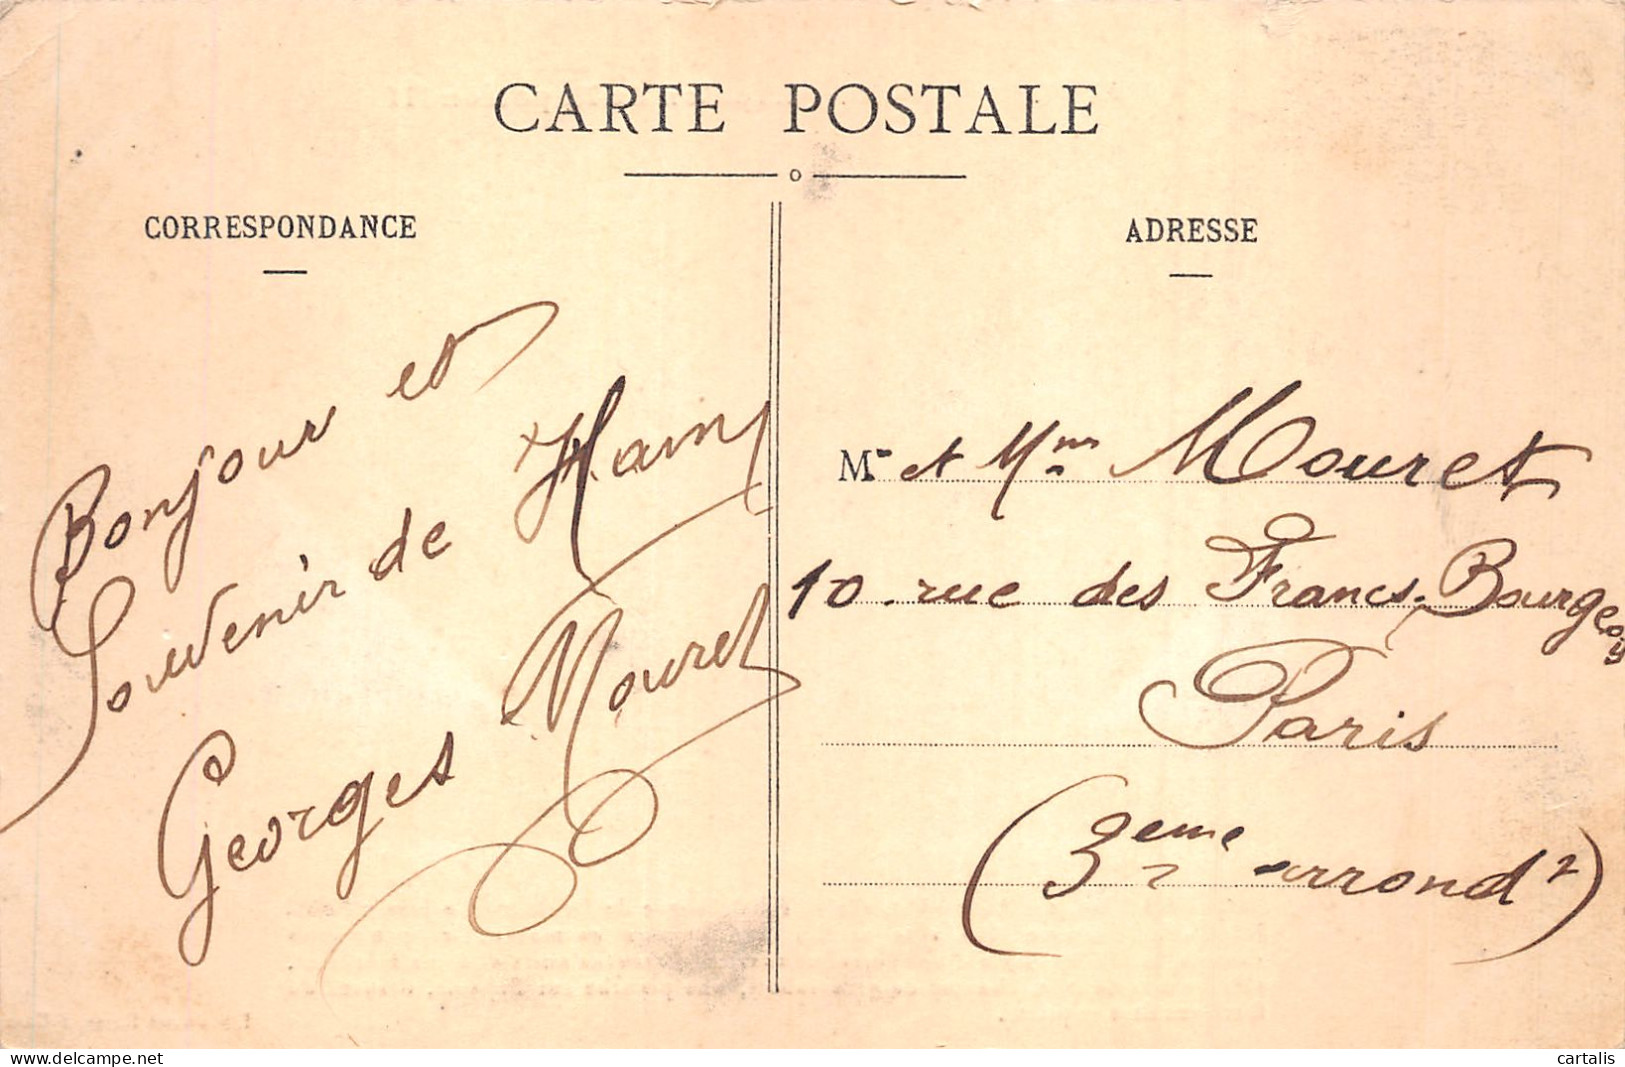 CARTE POSTALE
CORRESPONDANCE
Bonjour et
Souvenir de Ham
Georges Mouret
ADRESSE
Mr et Mme Mouret
10 rue des Francs-Bourgeois
Paris
(3eme arrondt)
cartalis